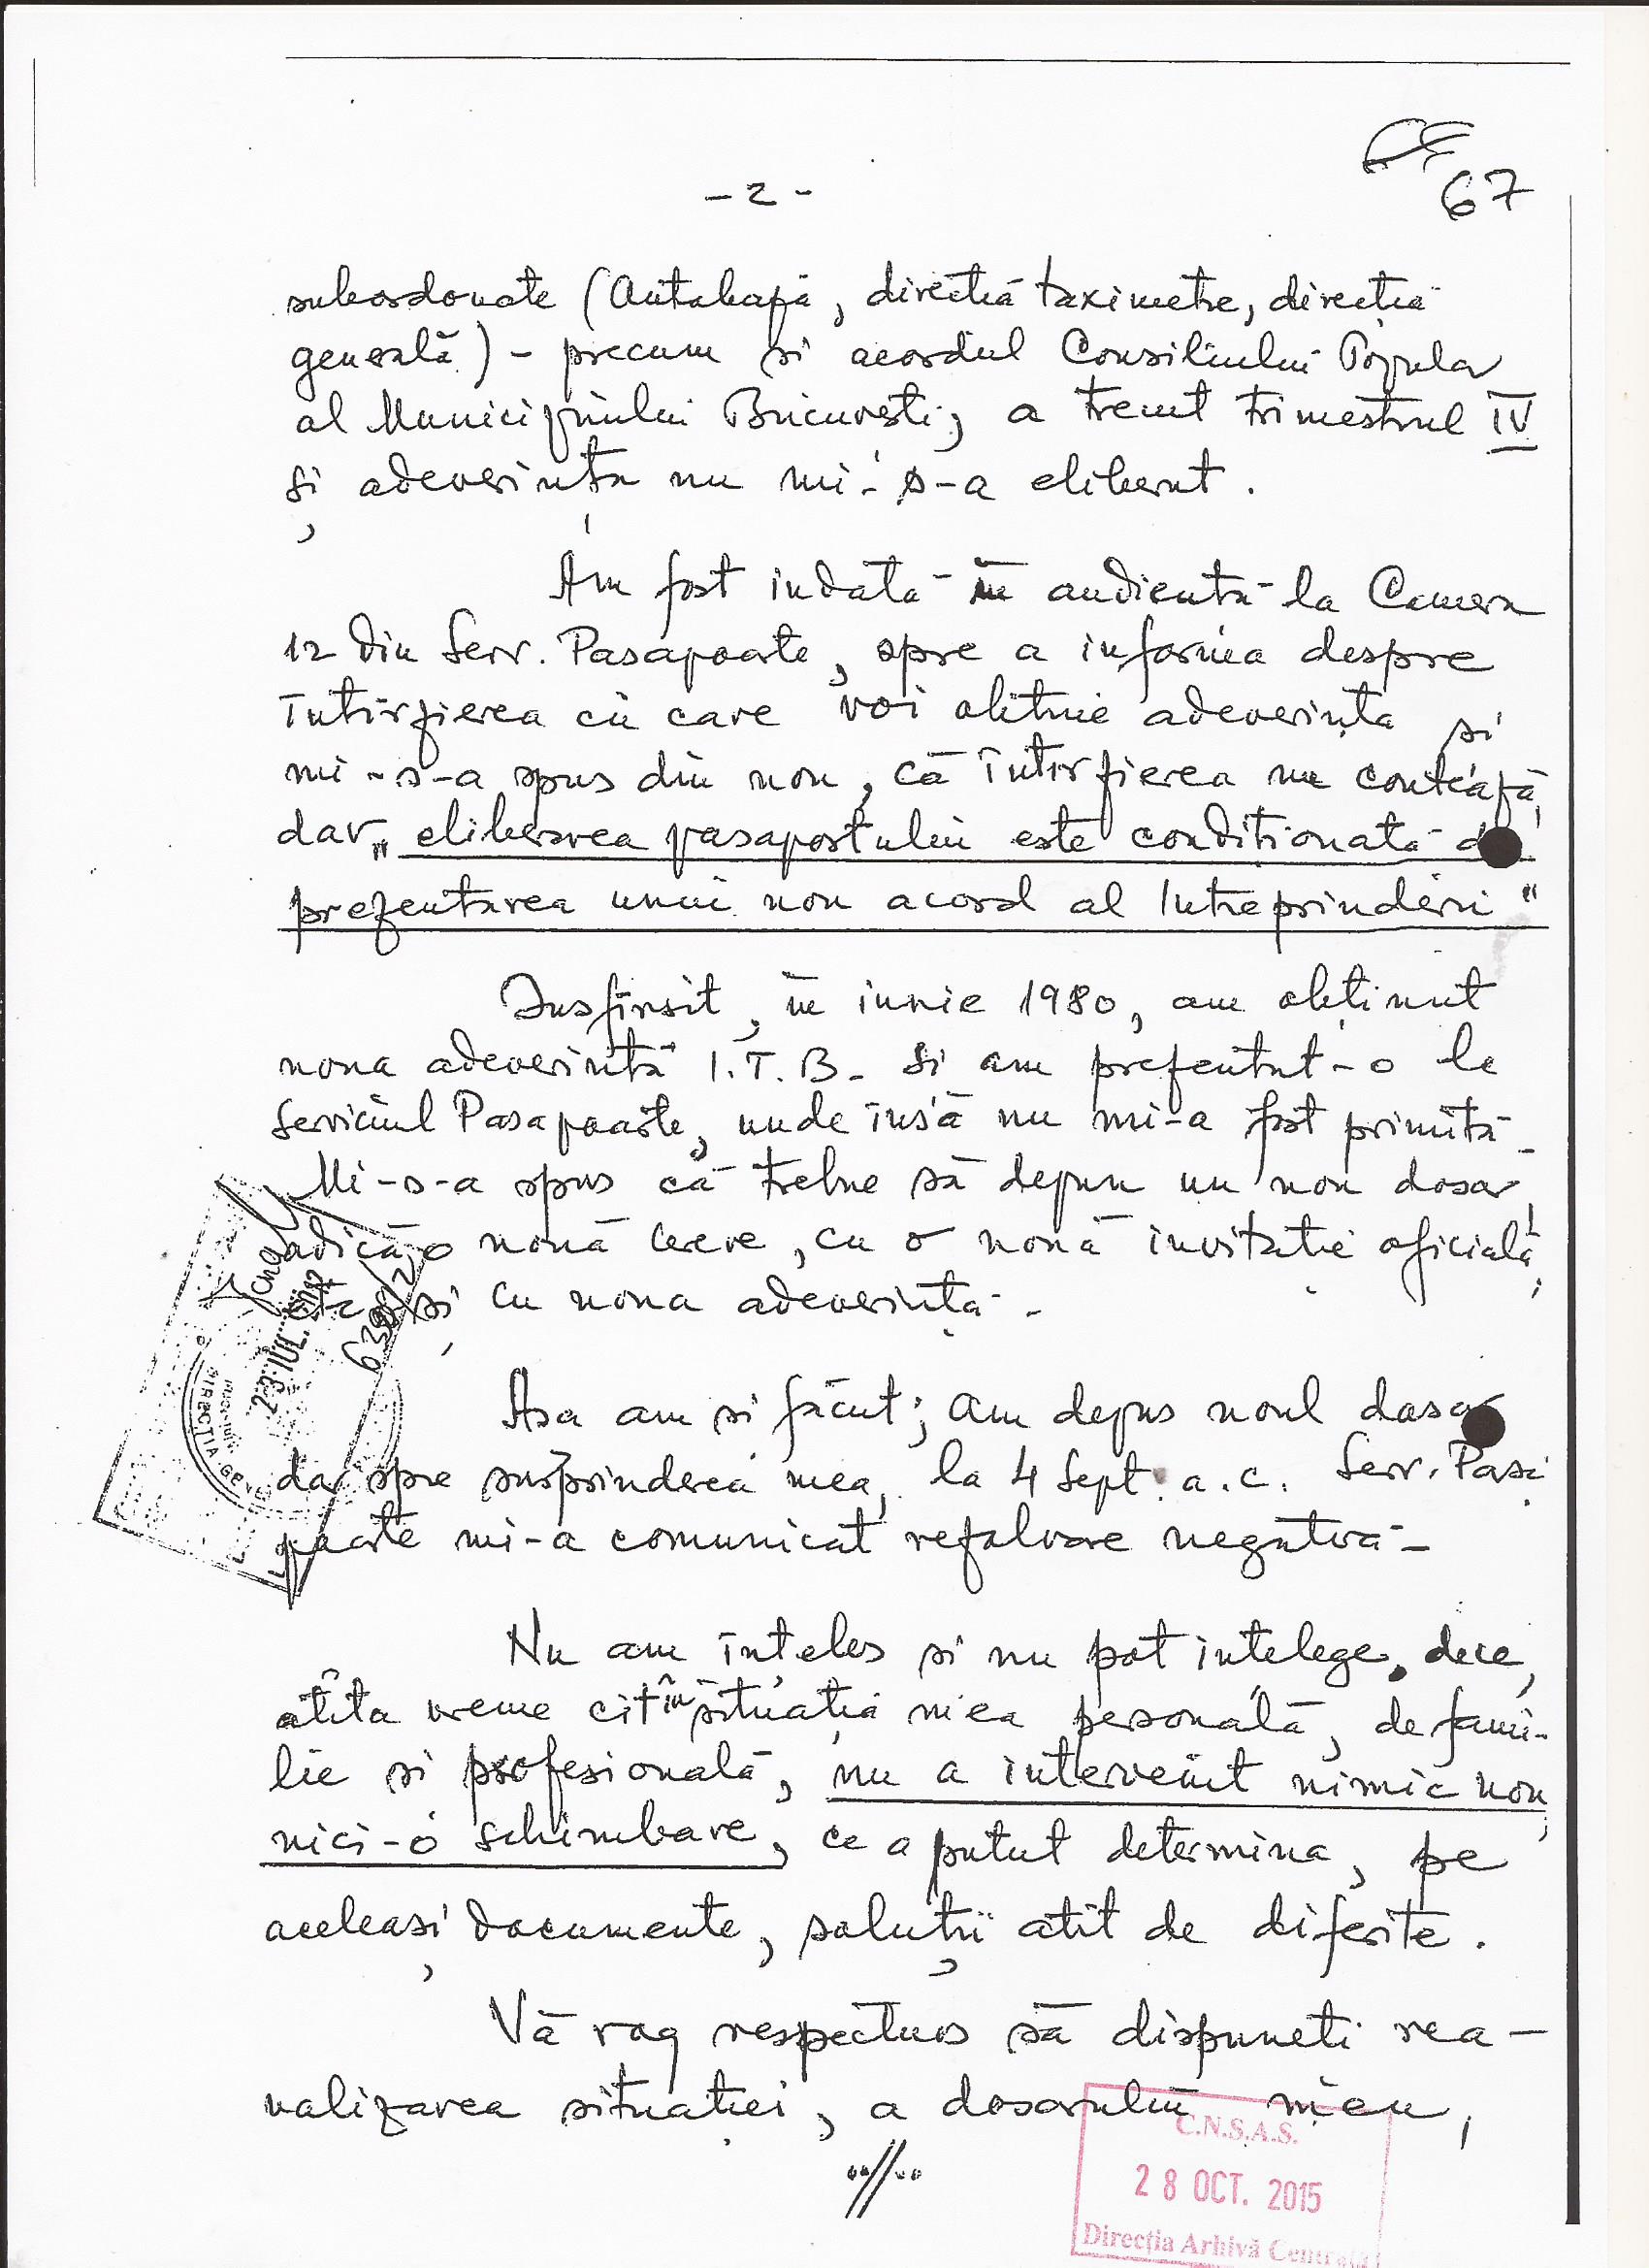 67
- 2 -
subordonate (Autobază, direcția taximetre, direcția
generală) - precum si acordul Consiliului Popular
al Municipiului București; a trecut trimestrul IV
și adeverința nu mi-s-a eliberat.
Am fost indată în audientă la Camera
12 din Serv. Pașapoarte, spre a informa despre
întîrzierea cu care voi obține adeverința si
mi-s-a spus din nou, că întîrzierea nu contează,
dar „eliberarea pasaportului este conditionată de
prezentarea unui nou acord al Intreprinderii"
Insfîrsit, în iunie 1980, am obținut
noua adeverintă I.T.B. si am prezentat-o la
Serviciul Pașapoarte, unde însă nu mi-a fost primită.
Mi-s-a spus că trebue să depun un nou dosar,
adică o nouă cerere, cu o nouă invitatie oficială,
și cu noua adeverință.
Asa am si făcut; am depus noul dosar
dar spre surprinderea mea, la 4 Sept. a.c. Serv. Pasa
poarte mi-a comunicat rezolvare negativă.
Nu am înțeles si nu pot intelege, dece,
atîta vreme cit în situația mea personală, de fami-
lie si profesională, nu a intervenit nimic nou,
nici-o schimbare, ce a putut determina, pe
aceleași documente, soluții atît de diferite.
Vă rog respectuos să dispuneti rea-
nalizarea situației, a dosarului meu,
..//..
23 IUL.
DIRECȚIA GENE
C.N.S.A.S.
28 OCT. 2015
Direcția Arhivă Centrală